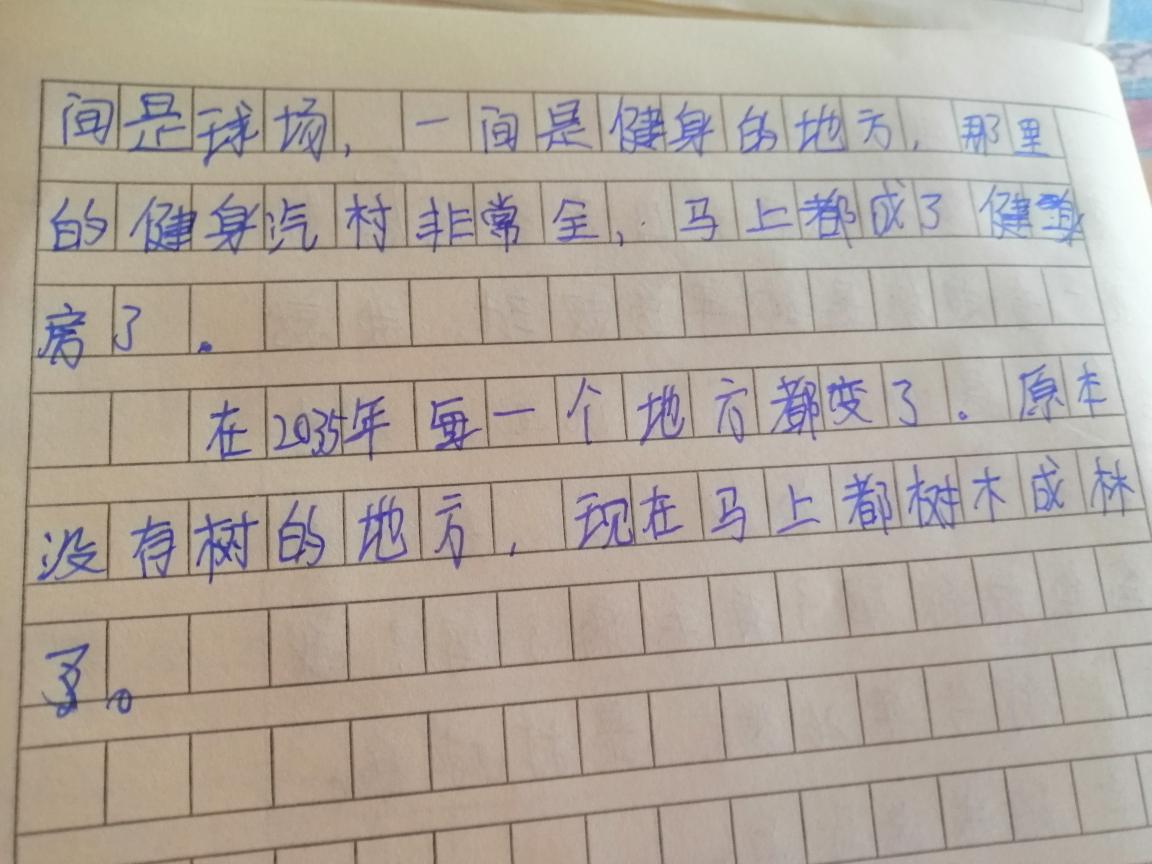 间是球场，一间是健身的地方，那里
的健身汽村非常全，马上都成了健身
房了。
在2035年每一个地方都变了。原本
没有树的地方，现在马上都树木成林
了。